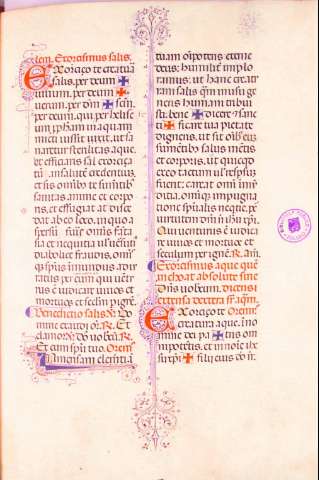 lem. Exorcismus salis.
Exorcizo te creatura
salis, per deum ✠
uiuum, per deum ✠
uerum, per deum ✠ scm,
per deum, qui per helise
um prophetam in aquam
mitti iussit, ut sa
naretur sterilitas aque,
ut efficiaris sal exorciza
tum in salute credentium,
et sis omnibus te sumentibus
sanitas anime et corpo
ris, et effugiat at disce
dat ab eo loco, in quo a
spersum fueris omnis fanta
sia et nequitia uel uersutia
diabolice fraudis, omnis
que spiritus inmundus adiu
ratus per eum qui uentu
rus est iudicare uiuos et
mortuos et seculum per ignem.
Benedictio salis. Do
mine exaudi or. R. Et
clamor. Dns uobiscum. R.
Et cum spiritu tuo. Oremus
Inmensam clementia
tuam omnipotens eterne
deus, humiliter implo
ramus, ut hanc creatu
ram salis quam in usu ge
neris humani tribui
sti, bene ✠ dicere et sanc
ti ✠ ficare tua pietate
digneris, ut sit omnibus
sumentibus salus mentis
et corporis, ut quicquid
ex eo tactum uel respersum
fuerit, careat omni inmun
ditia, omnique impugna
tione spiritualis nequitie. per
Qui uenturus est iudica
re uiuos et mortuos et
seculum per ignem. R. Am.
Exorcismus aque que
Dominus uobiscum.
Exorcizo te Oremus
creatura aque, in no
mine dei pa ✠ tris om
nipotentis, et in nomine ihesu
xpi ✠ filii eius domini